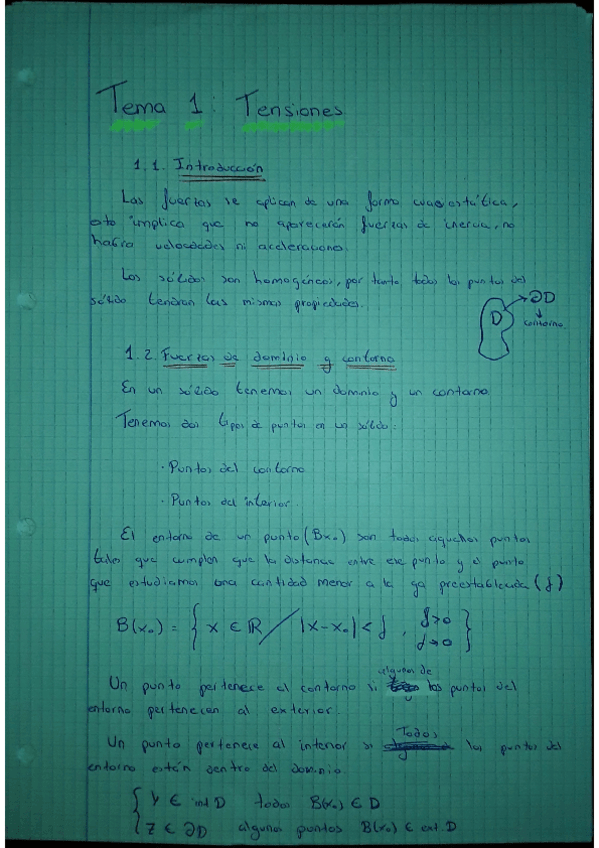 Tema 1: Tensiones
1.1. Introducción
Las fuerzas se aplican de una forma cuasiestática,
esto implica que no aparecerán fuerzas de inercia, no
habrá velocidades ni aceleraciones.
Los sólidos son homogéneos, por tanto todos los puntos del
sólido tendrán las mismas propiedades.
D
∂D
contorno
1.2. Fuerzas de dominio y contorno
En un sólido tenemos un dominio y un contorno.
Tenemos dos tipos de puntos en un sólido:
· Puntos del contorno
· Puntos del interior.
El entorno de un punto (Bx₀) son todos aquellos puntos
tales que cumplen que la distancia entre ese punto y el punto
que estudiamos una cantidad menor a la ya preestablecida (δ)
B(x₀) = { x ∈ ℝ / |x-x₀| < δ , δ>0 δ→0 }
Un punto pertenece al contorno si algunos de los puntos del
entorno pertenecen al exterior.
Un punto pertenece al interior si Todos los puntos del
entorno están dentro del dominio.
{ y ∈ int D todos B(x₀) ∈ D
z ∈ ∂D algunos puntos B(x₀) ∈ ext. D